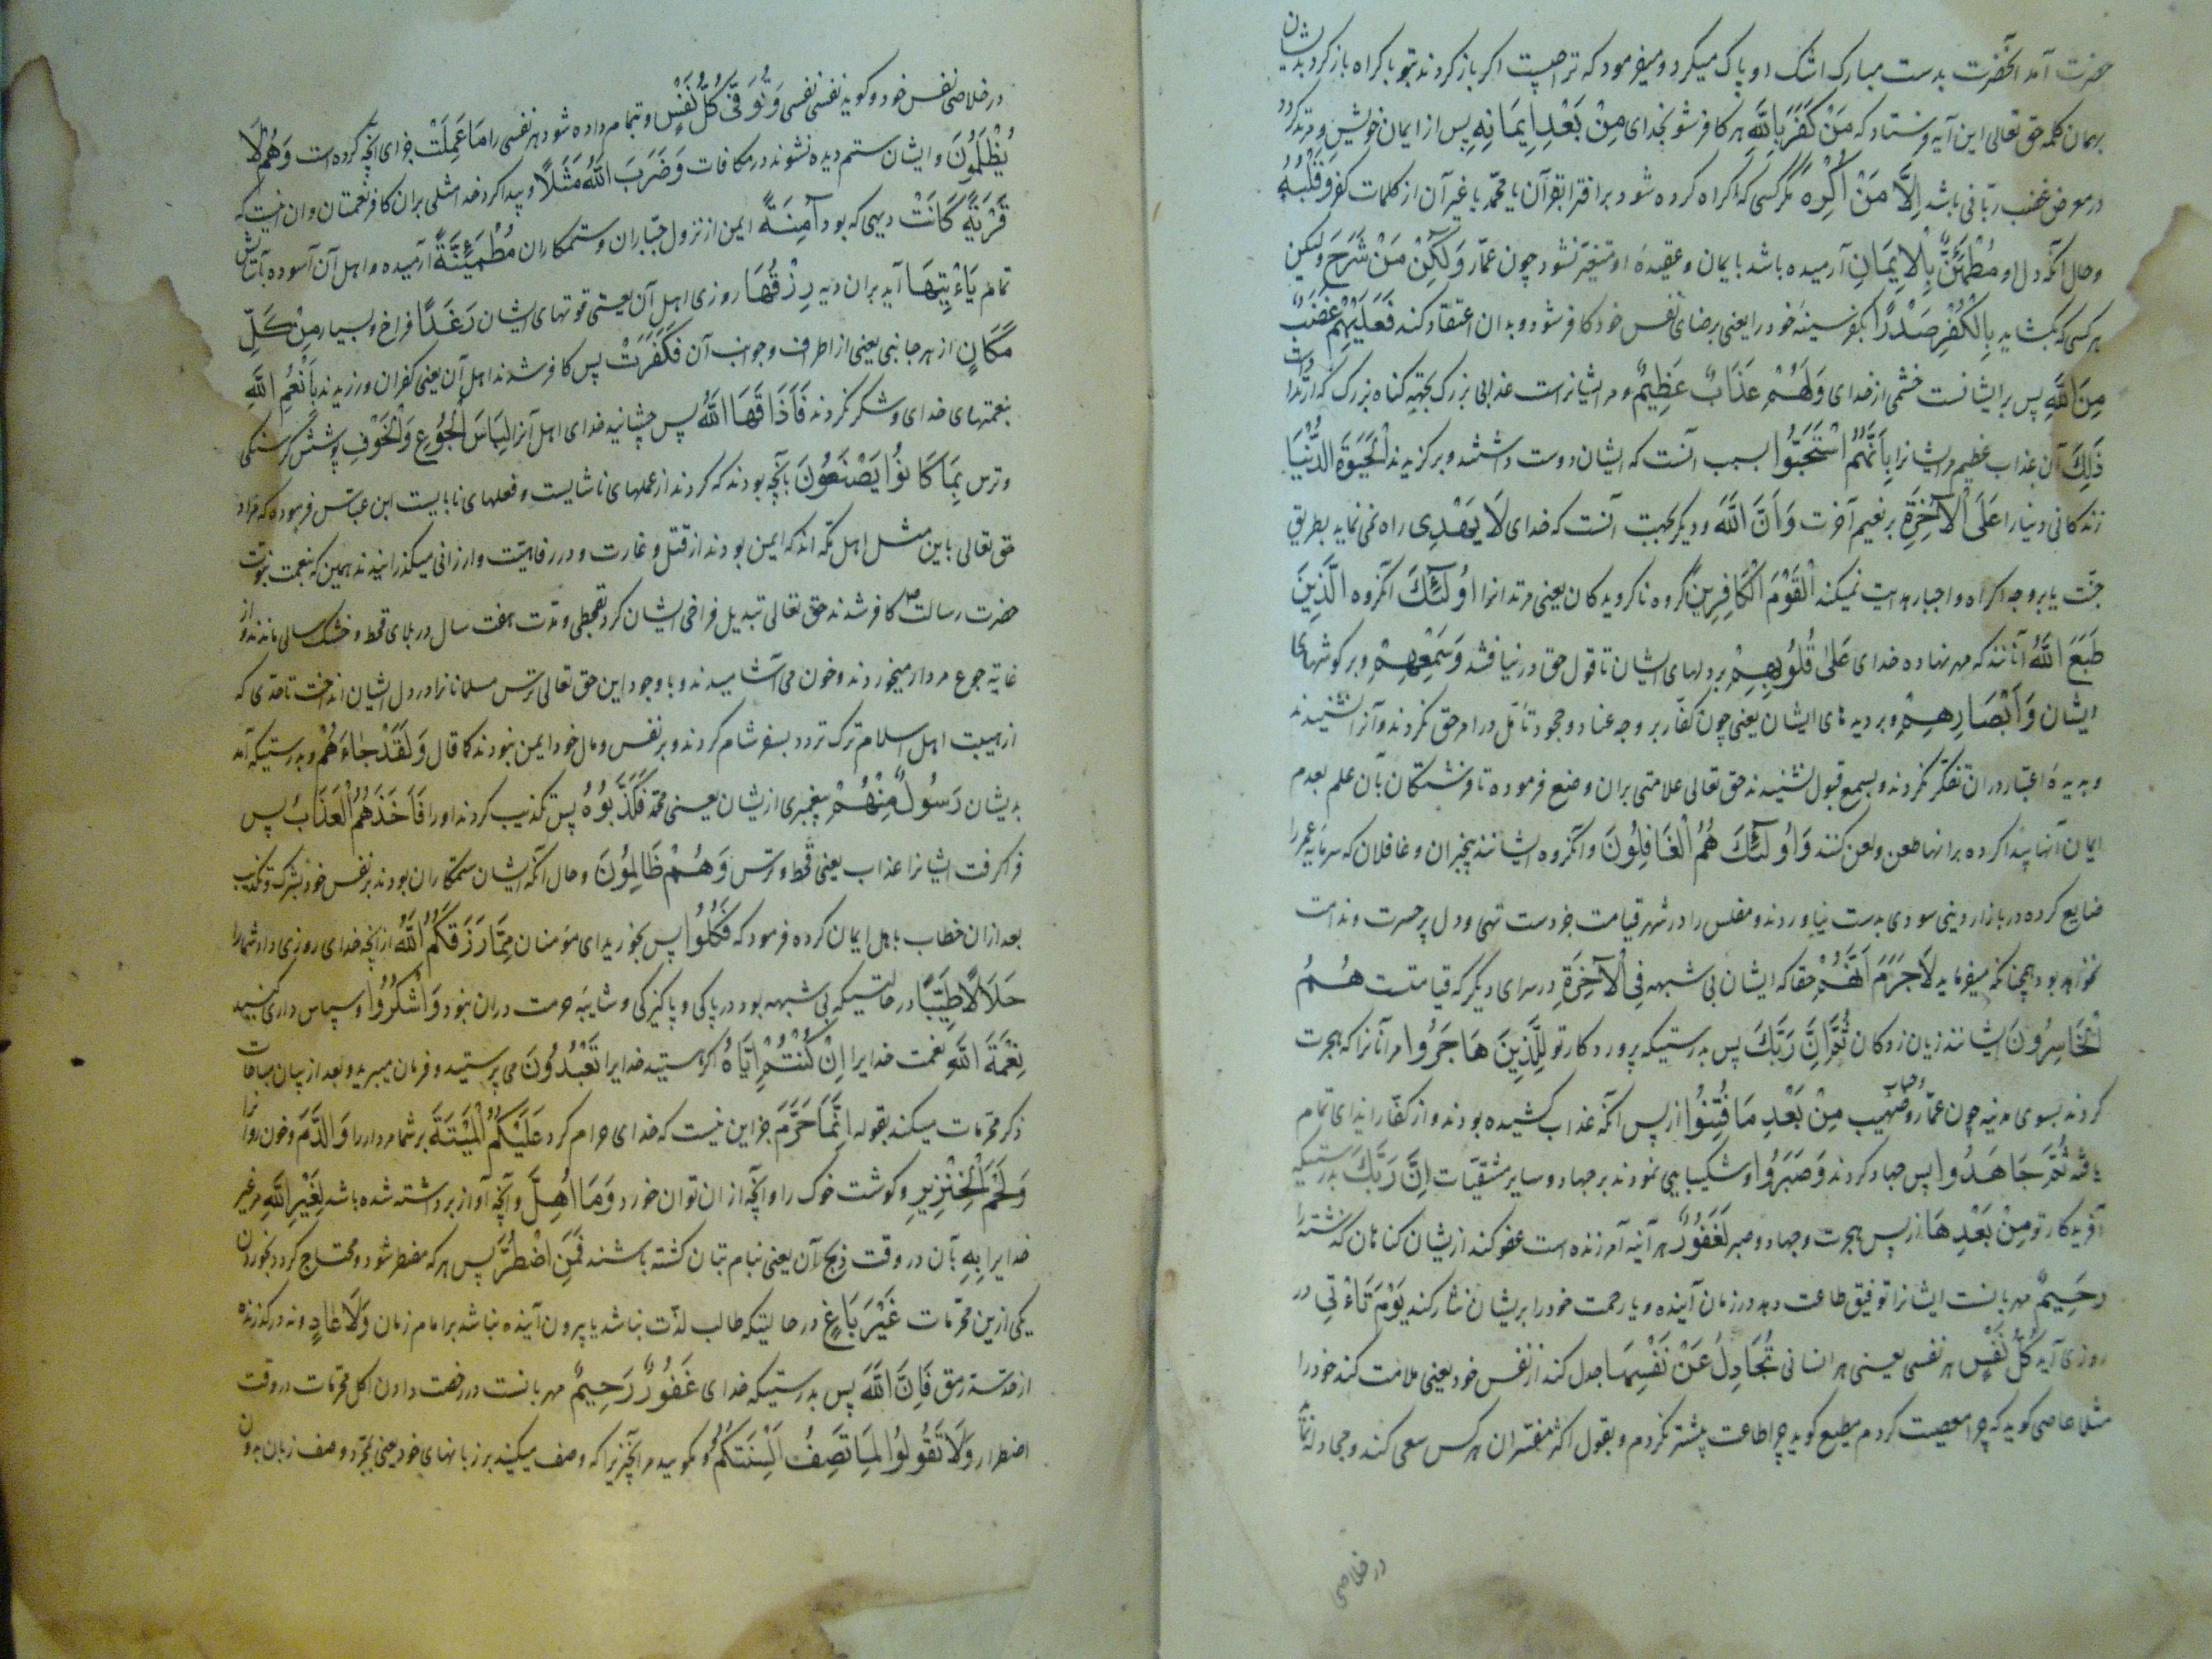 حضرت آمد آنحضرت بدست مبارک اشک او پاک میکرد و میفرمود که ترا چیست اکر باز کردند بتو باکراه باز کرد بدیشان
بهمان کلمه حق تعالی این آیه فرستاد که مَنْ كَفَرَ بِاللَّهِ هر کافر شو بخدای مِنْ بَعْدِ اِيمَانِهِ پس از ایمان خویش و مرتد کردد
در معرض غضب ربّانی باشد اِلَّا مَنْ اُكْرِهَ مکر کسی که اکراه کرده شود بر افترا بقرآن یا محمّد یا غیر آن از کلمات کفر وَ قَلْبُهُ
و حال آنکه دل او مُطْمَئِنٌّ بِالْاِيمَانِ آرمیده باشد بایمان و عقیدهٔ او متغیّر نشود چون عمّار وَلَكِنْ مَنْ شَرَحَ ولیکن
هر کسی که بکشاید بِالْكُفْرِ صَدْرًا بکفر سینهٔ خود را یعنی برضای نفس خود کافر شود و بدان اعتقاد کند فَعَلَيْهِمْ غَضَبٌ
مِنَ اللَّهِ پس بر ایشانست خشمی از خدای وَلَهُمْ عَذَابٌ عَظِيمٌ و مر ایشانراست عذابی بزرک بجهة کناه بزرک که ارتدادست
ذَلِكَ آن عذاب عظیم مر ایشانرا بِاَنَّهُمُ اسْتَحَبُّوا بسبب آنست که ایشان دوست داشتند و برکزیدند الْحَيٰوةَ الدُّنْيَا
زندکانی دنیا را عَلَى الْآخِرَةِ بر نعیم آخرت وَ اَنَّ اللَّهَ و دیکر بجهت آنست که خدای لَا يَهْدِى راه نمی نماید بطریق
جنّت یا بر وجه اکراه و اجبار هدایت نمیکند الْقَوْمَ الْكَافِرِينَ کروه ناکرویدکان یعنی مرتدانرا اُولَئِكَ آنکروه الَّذِينَ
طَبَعَ اللَّهُ آنانند که مهر نهاده خدای عَلَىٰ قُلُوبِهِمْ بر دلهای ایشان تا قول حق در نیافتند وَسَمْعِهِمْ و بر کوشهای
ایشان وَ اَبْصَارِهِمْ و بر دیدهای ایشان یعنی چون کفّار بر وجه عناد و جحود تأمّل در امر حق نکردند و آنرا نشنیدند
و بدیدهٔ اعتبار در ان تفکّر نکردند و بسمع قبول نشنیدند حق تعالی علامتی بران وضع فرموده تا فرشتکان بآن علم بعدم
ایمان آنها پیدا کرده بر انها طعن و لعن کنند وَ اُولَئِكَ هُمُ الْغَافِلُونَ و آنکروه ایشانند بیخبران و غافلان که سرمایهٔ عمر را
ضایع کرده در بازار دینی سودی بدست نیاوردند و مفلس را در شهر قیامت جز دست تهی و دل پر حسرت و ندامت
نخواهد بود چنانکه میفرماید لَا جَرَمَ اَنَّهُمْ حقا که ایشان بی شبهه فِى الْآخِرَةِ در سرای دیکر که قیامتست هُمُ
الْخَاسِرُونَ ایشانند زیان زدکان ثُمَّ اِنَّ رَبَّكَ پس بدرستیکه پروردکار تو لِلَّذِينَ هَاجَرُوا مر آنانرا که هجرت
کردند بسوی مدینه چون عمّار و صهیب و خباب مِنْ بَعْدِ مَا فُتِنُوا از پس آنکه عذاب کشیده بودند و از کفّار ایذای تمام
یافته ثُمَّ جَاهَدُوا پس جهاد کردند وَ صَبَرُوا و شکیبایی نمودند بر جهاد و سایر مشقّات اِنَّ رَبَّكَ بدرستیکه
آفریدکار تو مِنْ بَعْدِهَا از پس هجرت و جهاد و صبر لَغَفُورٌ هر آینه آمرزنده است عفو کند از یشان کناهان کذشته را
رَحِيمٌ مهربانست ایشانرا توفیق طاعت دهد در زمان آینده و یا رحمت خود را بریشان نثار کند يَوْمَ تَاْتِى در
روزی آید كُلُّ نَفْسٍ هر نفسی یعنی هر انسانی تُجَادِلُ عَنْ نَفْسِهَا جدل کند از نفس خود یعنی ملامت کند خود را
مثلا عاصی کوید که چرا معصیت کردم مطیع کوید چرا طاعت بیشتر نکردم و بقول اکثر مفسّران هر کس سعی کند و مجادله نماید
در خلاصی
در خلاصی نفس خود و کوید نفسی نفسی وَتُوَفّٰى كُلُّ نَفْسٍ و تمام داده شود هر نفسی را مَا عَمِلَتْ جزای آنچه کرده است وَهُمْ لَا
يُظْلَمُونَ و ایشان ستم دیده نشوند در مکافات وَضَرَبَ اللَّهُ مَثَلًا و پیدا کرد خدا مثلی بران کافر نعمتان و ان اینست که
قَرْيَةً كَانَتْ دیهی که بود آمِنَةً ایمن از نزول جبّاران و ستمکاران مُطْمَئِنَّةً آرمیده و اهل آن آسوده بآسایش
تمام يَأْتِيهَا آید بران دیه رِزْقُهَا روزی اهل آن یعنی قوتهای ایشان رَغَدًا فراخ و بسیار مِنْ كُلِّ
مَكَانٍ از هر جانبی یعنی از اطراف و جوانب آن فَكَفَرَتْ پس کافر شدند اهل آن یعنی کفران ورزیدند بِاَنْعُمِ اللَّهِ
بنعمتهای خدای و شکر نکردند فَاَذَاقَهَا اللَّهُ پس چشانید خدای اهل آنرا لِبَاسَ الْجُوعِ وَالْخَوْفِ پوشش کرسنکی
و ترس بِمَا كَانُوا يَصْنَعُونَ بآنچه بودند که کردند از عملهای ناشایست و فعلهای نابایست ابن عبّاس فرموده که مراد
حق تعالی باین مثل اهل مکّه اند که ایمن بودند از قتل و غارت و در رفاهیّت و ارزانی میکذرانیدند همین که بنعمت نبوّت
حضرت رسالت ص کافر شدند حق تعالی تبدیل فراخی ایشان کرد بقحطی و مدّت هفت سال در بلای قحط و خشک سالی ماندند و از
غایة جوع مردار میخوردند و خون می آشامیدند و با وجود این حق تعالی ترس مسلمانانرا در دل ایشان انداخت تا حدّی که
از هیبت اهل اسلام ترک تردد بسفر شام کردند و بر نفس و مال خود ایمن نبودند کما قال وَلَقَدْ جَاءَهُمْ و بدرستیکه آمد
بدیشان رَسُولٌ مِنْهُمْ پیغمبری از یشان یعنی محمّد فَكَذَّبُوهُ پس تکذیب کردند او را فَاَخَذَهُمُ الْعَذَابُ پس
فرا کرفت ایشانرا عذاب یعنی قحط و ترس وَهُمْ ظَالِمُونَ و حال آنکه ایشان ستمکاران بودند بر نفس خود بشرک و تکذیب
بعد ازان خطاب باهل ایمان کرده فرمود که فَكُلُوا پس بخورید ای مؤمنان مِمَّا رَزَقَكُمُ اللَّهُ از آنچه خدای روزی داد شما را
حَلَالًا طَيِّبًا در حالتیکه بی شبهه بود در پاکی و پاکیزکی و شایبهٔ حرمت دران نبود وَ اشْكُرُوا و سپاس داری کنید
نِعْمَةَ اللَّهِ نعمت خدایرا اِنْ كُنْتُمْ اِيَّاهُ اکر هستید خدایرا تَعْبُدُونَ می پرستید و فرمان میبرید و بعد از بیان مباحات
ذکر محرّمات میکند بقوله اِنَّمَا حَرَّمَ جز این نیست که خدای حرام کرد عَلَيْكُمُ الْمَيْتَةَ بر شما مردار را وَالدَّمَ و خون روانرا
وَلَحْمَ الْخِنْزِيرِ و کوشت خوک را و آنچه از ان توان خورد وَمَا اُهِلَّ و آنچه آواز برداشته شده باشد لِغَيْرِ اللَّهِ مر غیر
خدایرا بِهِ بآن در وقت ذبح آن یعنی بنام بتان کشته باشند فَمَنِ اضْطُرَّ پس هر که مضطر شود و محتاج کردد بخوردن
یکی ازین محرّمات غَيْرَ بَاغٍ در حالتیکه طالب لذّت نباشد یا بیرون آینده نباشد بر امام زمان وَلَا عَادٍ و نه درکذرنده
از حدّ سدّ رمق فَاِنَّ اللَّهَ پس بدرستیکه خدای غَفُورٌ رَحِيمٌ مهربانست در رخصت دادن اکل محرّمات در وقت
اضطرار وَلَا تَقُولُوا لِمَا تَصِفُ اَلْسِنَتُكُمُ و مکویید مر آنچیزیرا که وصف میکند بر زبانهای خود یعنی بمجرّد وصف زبان بدون